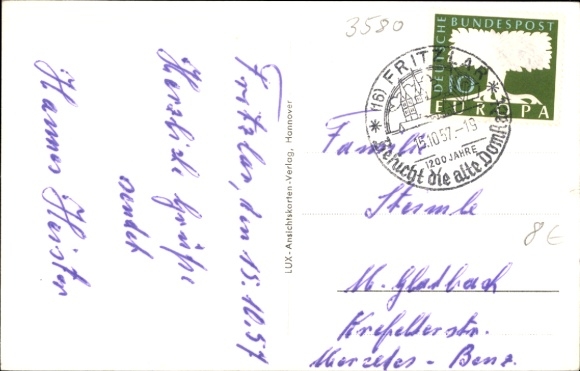 Fritzlar, den 15.10.57
Herzliche Grüße
sendet
Hannes Heister
LUX-Ansichtskarten-Verlag, Hannover
3580
DEUTSCHE BUNDESPOST
10
EUROPA
(16) FRITZLAR
15.10.57.-19
1200 JAHRE
Besucht die alte Domstadt
Familie
Stermle
8€
M. Gladbach
Krefelderstr.
Mercedes - Benz.